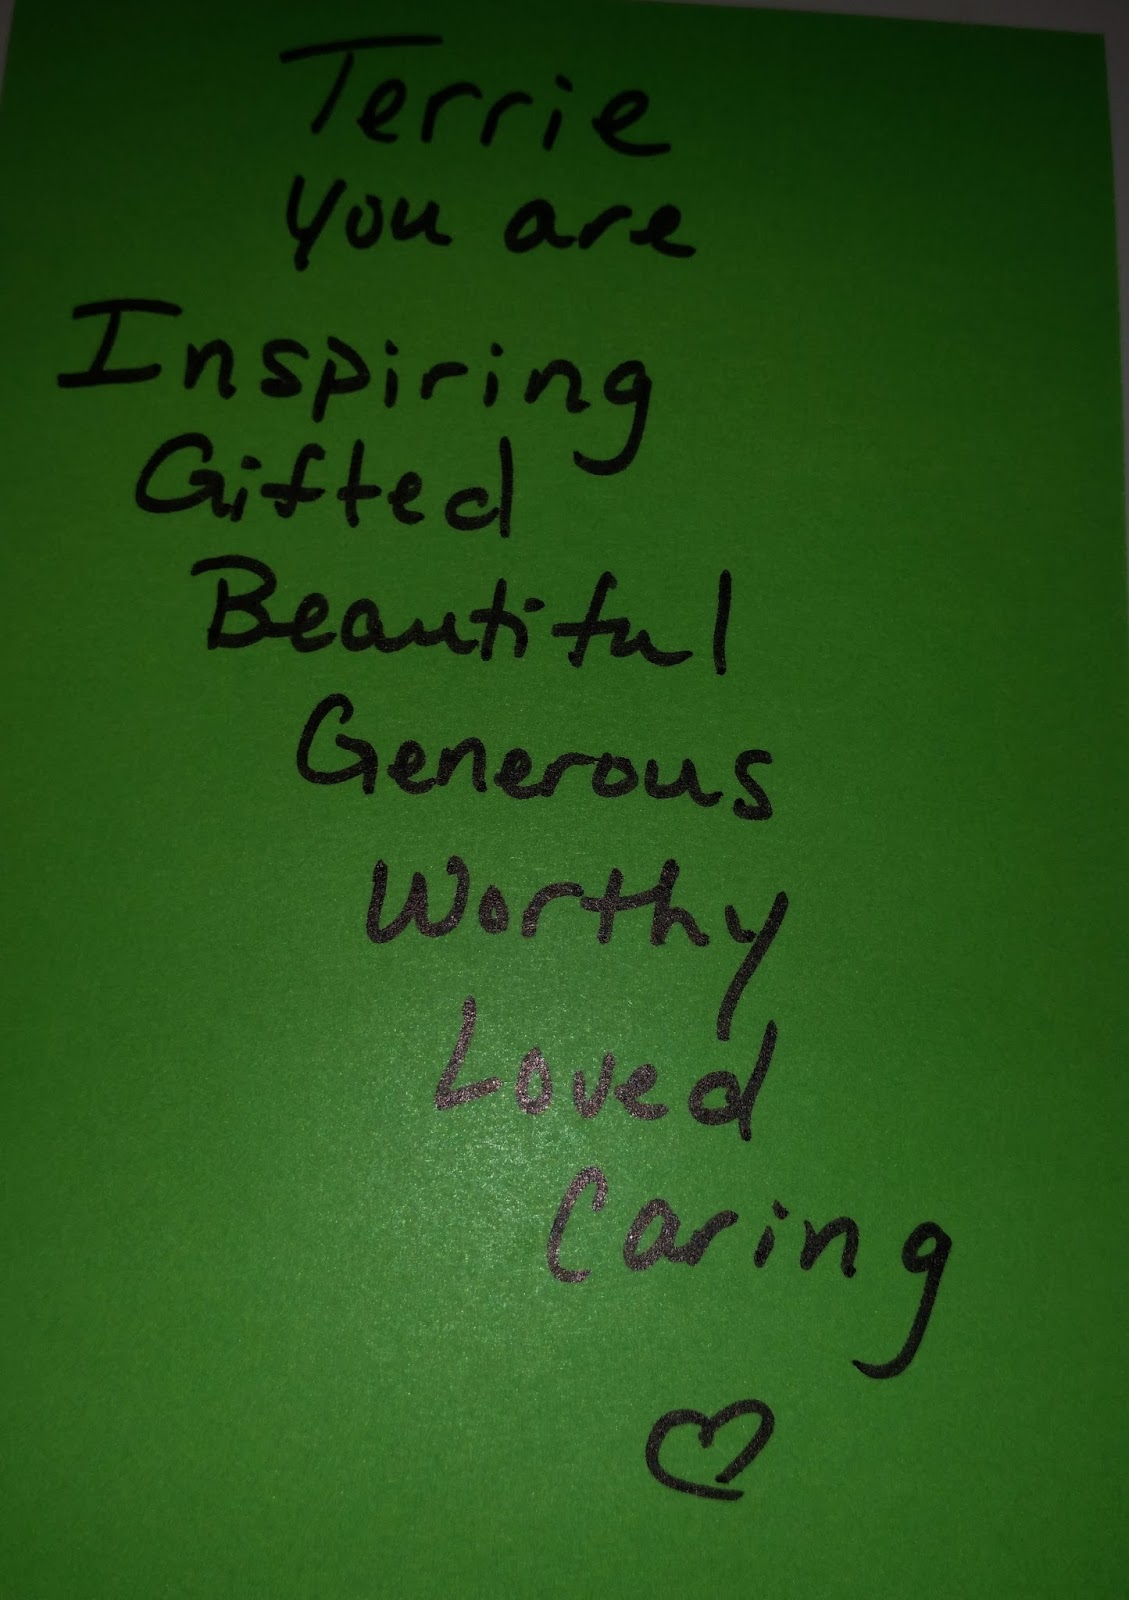 Terrie
you are
Inspiring
Gifted
Beautiful
Generous
Worthy
Loved
Caring